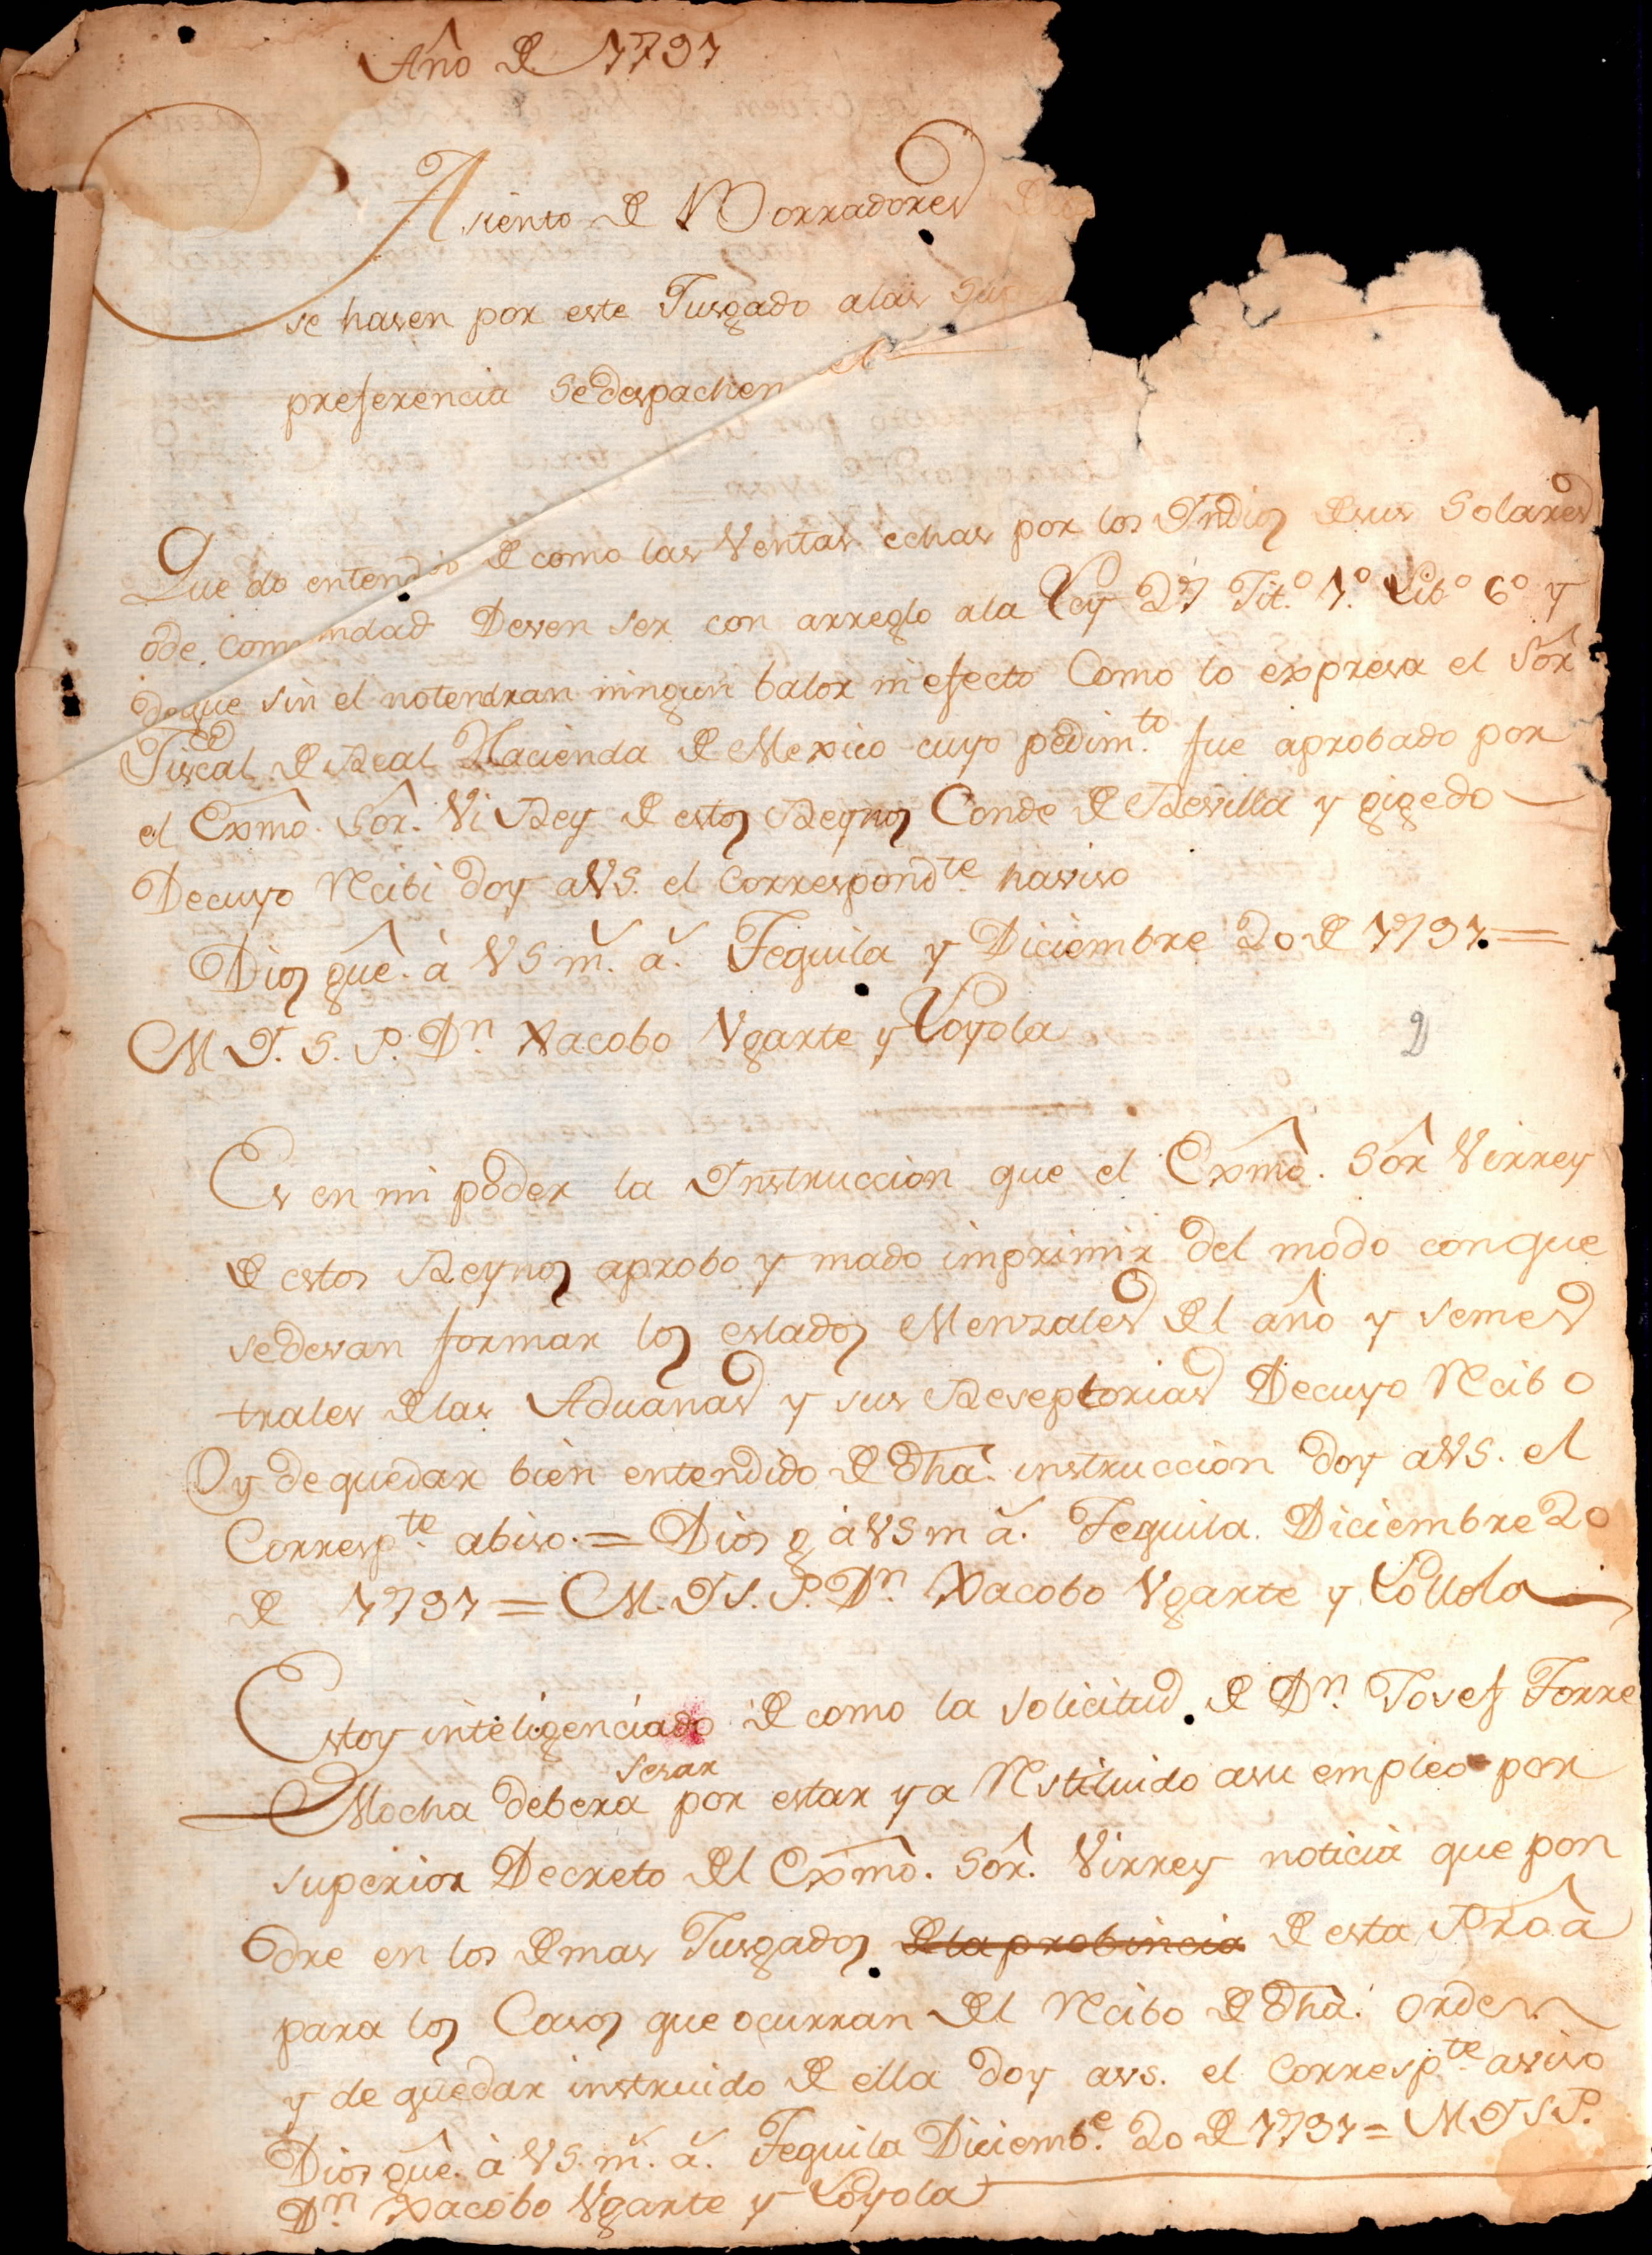 Año de 1791
Asiento de Borradores
se hasen por este Jusgado alas
preferencia Sedespachen
Quedo entendido de como las Ventas echas por los Indios desus Solares
ode comunidad Deven ser con arreglo ala Ley 27 Tit.º 1.º Lib.º 6º y
deque sin el notendran ningun balor ni efecto Como lo expresa el Sõr
Fiscal de Real Hacienda de Mexico cuyo pedim.to fue aprobado por
el Exmõ. Sõr. Vi Rey de estos Reynos Conde de Revilla y gigedo
Decuyo Recibi doy aVS. el correspond.te haviso
Dios guê. à VS m.̆ a.̆ Tequila y Diciembre 20 de 1791. =
M. I. S. P. Dn. Xacobo Vgarte y Loyola
2
Es en mi poder la Instruccion que el Exmõ. Sõr Virrey
de estos Reynos aprobo y mado imprimir del modo conque
sedevan formar los estados Menzales del año y semes
trales delas Aduanas y sus Reseptorias Decuyo Recibo
Oy dequedar bien entendido de dhã. instruccion doy aVS. el
Corresp.te abiso. = Dios g à VS m ă. Tequila. Diciembre 20
de 1791 = M. I S. P. Dn. Xacobo Vgarte y Lollola
Estoy inteligenciado de como la solicitud de Dn. Josef Torre
sesar
Mocha debera por estar ya Restituido asu empleo por
superior Decreto del Exmõ. Sõr. Virrey noticia que pon
dre en los demas Jusgados dela probincia de esta Proâ
para los Casos que ocurran del Recibo de dhã. orden
y de quedar instruido de ella doy avs. el corresp.te aviso
Dios guê. à VS. m.̆ a.̆ Tequila Diciemb.e 20 de 1791 = M I S P.
Dn. Xacobo Vgarte y Loyola